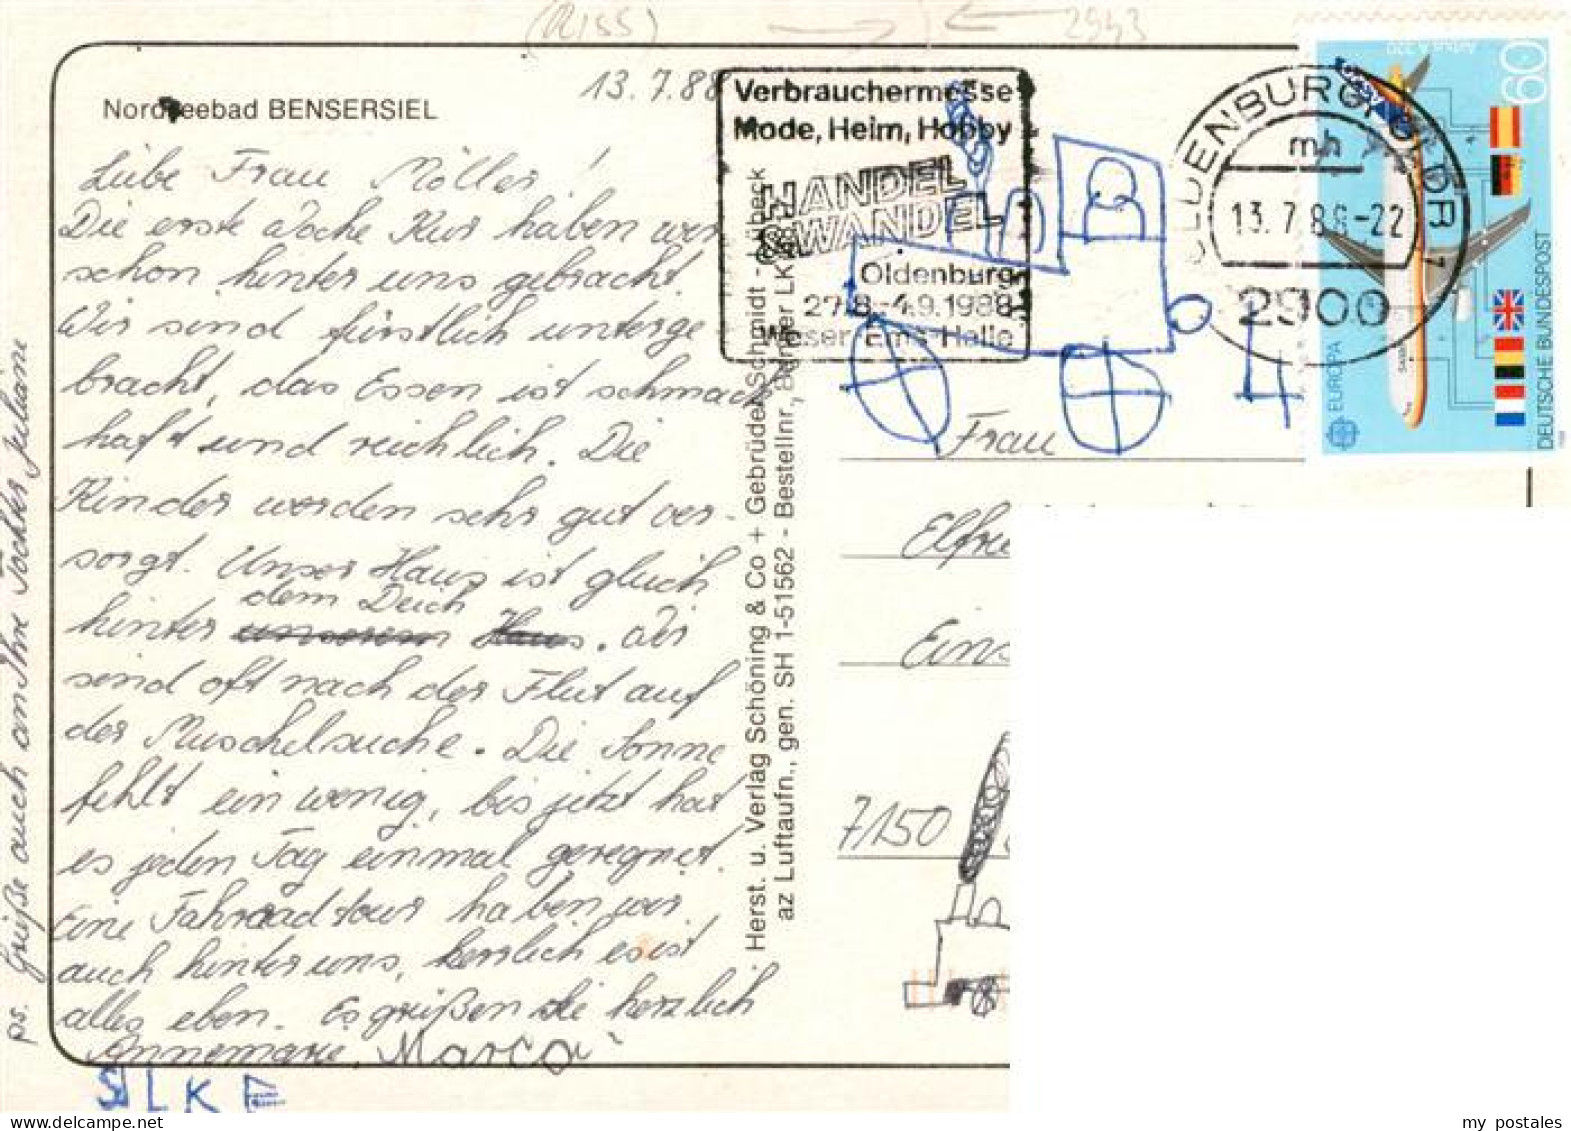 (RISS)
2943
13.7.88
Nordseebad BENSERSIEL
Liebe Frau Möller!
Die erste Woche Kur haben wir
schon hinter uns gebracht.
Wir sind fürstlich unterge
bracht, das Essen ist schmack
haft und reichlich. Die
Kinder werden sehr gut ver-
sorgt. Unser Haus ist gleich
dem Deich
hinter unserem Haus. Wir
sind oft nach der Flut auf
der Muschelsuche. Die Sonne
fehlt ein wenig, bis jetzt hat
es jeden Tag einmal geregnet.
Eine Fahrradtour haben wir
auch hinter uns, herrlich es ist
alles eben. Es grüßen Sie herzlich
Annemarie, Marco
SILKE
ps. Grüße auch an Ihre Tochter Juliane
Herst. u. Verlag Schöning & Co + Gebrüder Schmidt - Lübeck
az Luftaufn., gen. SH 1-51562 - Bestellnr. Ben LK
Verbrauchermesse
Mode, Heim, Hobby
HANDEL
& WANDEL
Oldenburg
27.8.-4.9.1988
Weser-Ems-Halle
OLDENBURG, OLDB 1
mh
13.7.88-22
2900
Airbus A 320
60
EUROPA
DEUTSCHE BUNDESPOST
Frau
Elfrie
Eins
7150
my postales